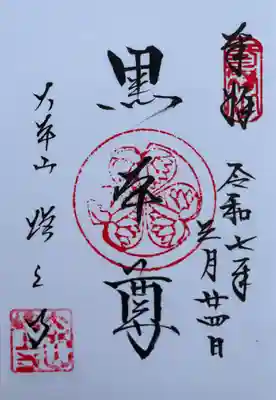 奉拝
令和七年三月廿四日
黒本尊
大本山 増上寺